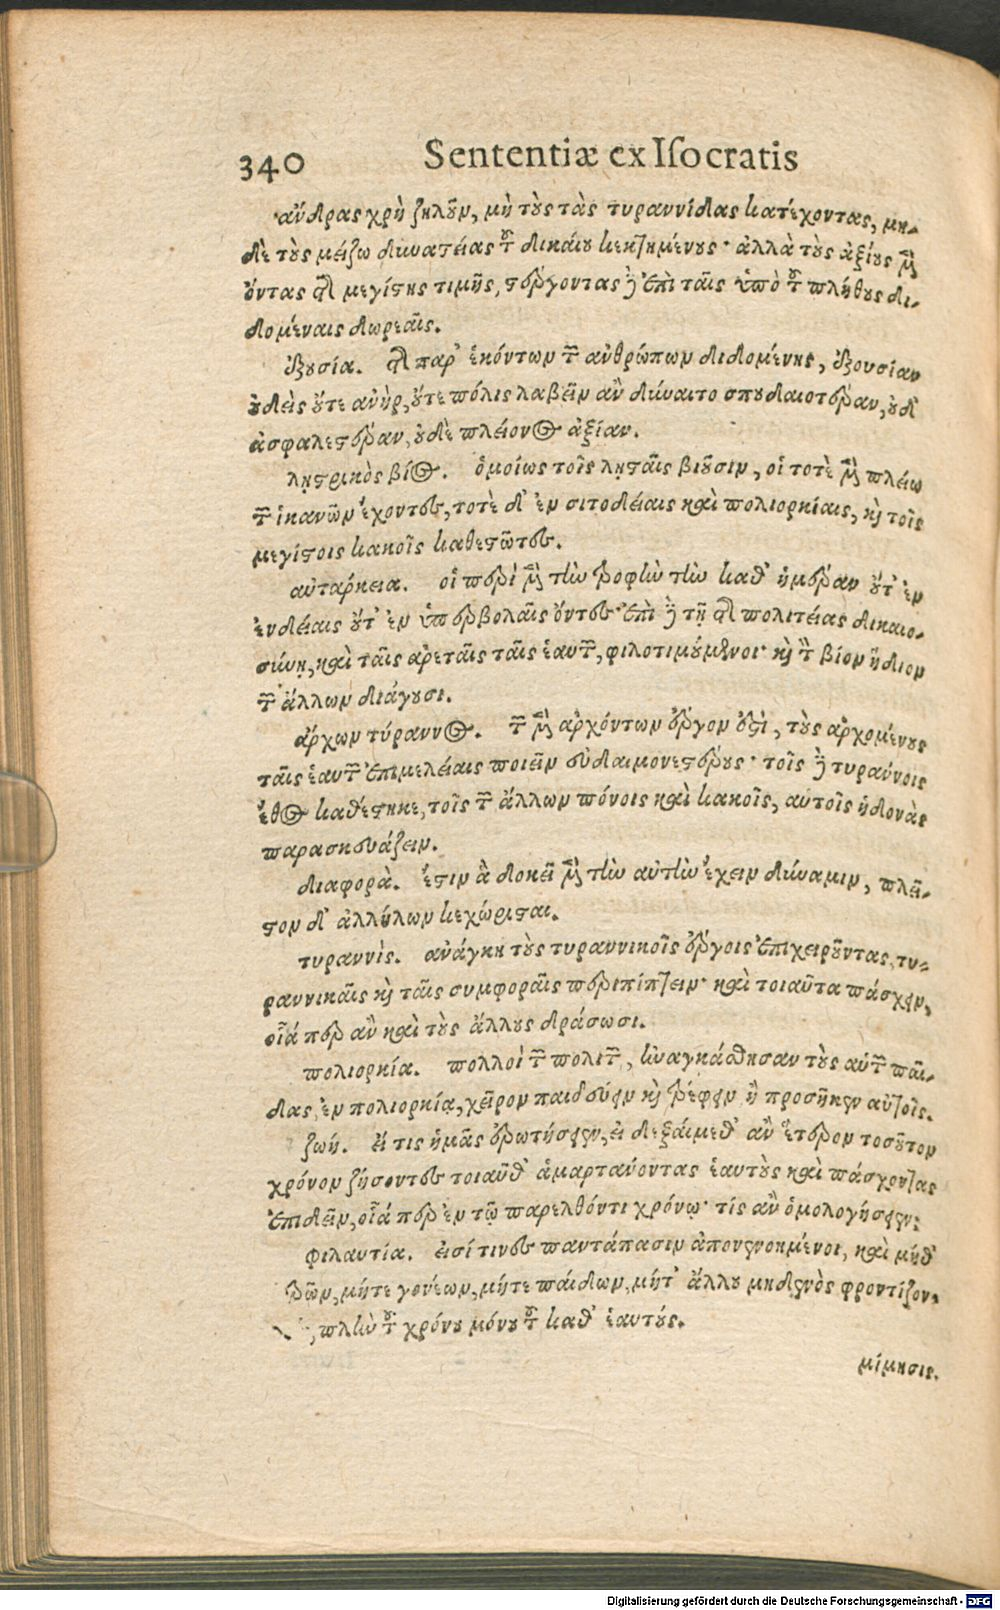 340 Sententiæ ex Iſocratis
ἄνδρας χρὴ ζηλοῦν, μὴ τοὺς τὰς τυραννίδας κατέχοντας, μη-
δὲ τοὺς μείζω δυναστείας τοῦ δικαίου κεκτημένους· ἀλλὰ τοὺς ἀξίους μὲν
ὄντας τῆς μεγίστης τιμῆς, στέργοντας δὲ ἐπὶ ταῖς ὑπὸ τοῦ πλήθους δι-
δομέναις δωρεαῖς.
ἐξουσία. τῆς παρ' ἑκόντων τῶν ἀνθρώπων διδομένης, ἐξουσίαν
οὐδεὶς οὔτε ἀνὴρ, οὔτε πόλις λαβεῖν ἂν δύναιτο σπουδαιοτέραν, οὐδ'
ἀσφαλεστέραν, οὐδὲ πλείονος ἀξίαν.
λῃστρικὸς βίος. ὁμοίως τοῖς λῃσταῖς βιοῦσιν, οἱ τοτὲ μὲν πλείω
τῶν ἱκανῶν ἔχοντες, τοτὲ δ' ἐν σιτοδείαις καὶ πολιορκίαις, καὶ τοῖς
μεγίστοις κακοῖς καθεστῶτες.
αὐτάρκεια. οἱ περὶ μὲν τὴν τροφὴν τὴν καθ' ἡμέραν οὔτ' ἐν
ἐνδείαις οὔτ' ἐν ὑπερβολαῖς ὄντες· ἐπὶ δὲ τῇ τῆς πολιτείας δικαιο-
σύνῃ, καὶ ταῖς ἀρεταῖς ταῖς ἑαυτῶν, φιλοτιμούμενοι· καὶ τὸν βίον ἥδιον
τῶν ἄλλων διάγουσι.
ἄρχων τύραννος. τῶν μὲν ἀρχόντων ἔργον ἐστὶ, τοὺς ἀρχομένους
ταῖς ἑαυτῶν ἐπιμελείαις ποιεῖν εὐδαιμονεστέρους· τοῖς δὲ τυράννοις
ἔθος καθέστηκε, τοῖς τῶν ἄλλων πόνοις καὶ κακοῖς, αὑτοῖς ἡδονὰς
παρασκευάζειν.
διαφορὰ. ἔστιν ἃ δοκεῖ μὲν τὴν αὐτὴν ἔχειν δύναμιν, πλεῖ-
στον δ' ἀλλήλων κεχώρισται.
τυραννὶς. ἀνάγκη τοὺς τυραννικοῖς ἔργοις ἐπιχειροῦντας, τυ-
ραννικαῖς καὶ ταῖς συμφοραῖς περιπίπτειν· καὶ τοιαῦτα πάσχειν,
οἷά περ ἂν καὶ τοὺς ἄλλους δράσωσι.
πολιορκία. πολλοὶ τῶν πολιτῶν, ἠναγκάσθησαν τοὺς αὑτῶν παῖ-
δας, ἐν πολιορκίᾳ, χεῖρον παιδεύειν καὶ τρέφειν ἢ προσῆκεν αὐτοῖς.
ζωή. εἴ τις ἡμᾶς ἐρωτήσειεν, εἰ δεξαίμεθ' ἂν ἕτερον τοσοῦτον
χρόνον ζήσοντες τοιαῦθ' ἁμαρτάνοντας ἑαυτοὺς καὶ πάσχοντας
ἐπιδεῖν, οἷά περ ἐν τῷ παρελθόντι χρόνῳ· τίς ἂν ὁμολογήσειεν;
φιλαυτία. εἰσί τινες παντάπασιν ἀπονενοημένοι, καὶ μήθ'
ἱερῶν, μήτε γονέων, μήτε παίδων, μήτ' ἄλλου μηδενὸς φροντίζον-
, πλὴν τοῦ χρόνου μόνου τοῦ καθ' ἑαυτούς.
μίμησις.
Digitalisierung gefördert durch die Deutsche Forschungsgemeinschaft - DFG